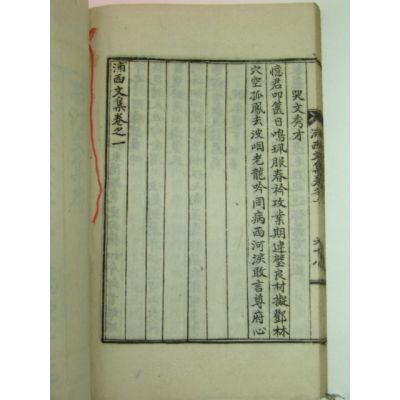 浦西文集卷之
哭文秀才
憶君叩篋日鳴珮服春衿攻業期連璧良材擬鄧林
穴空孤鳳去波咽老龍吟同病西河淚敢言尊府心
浦西文集卷之一